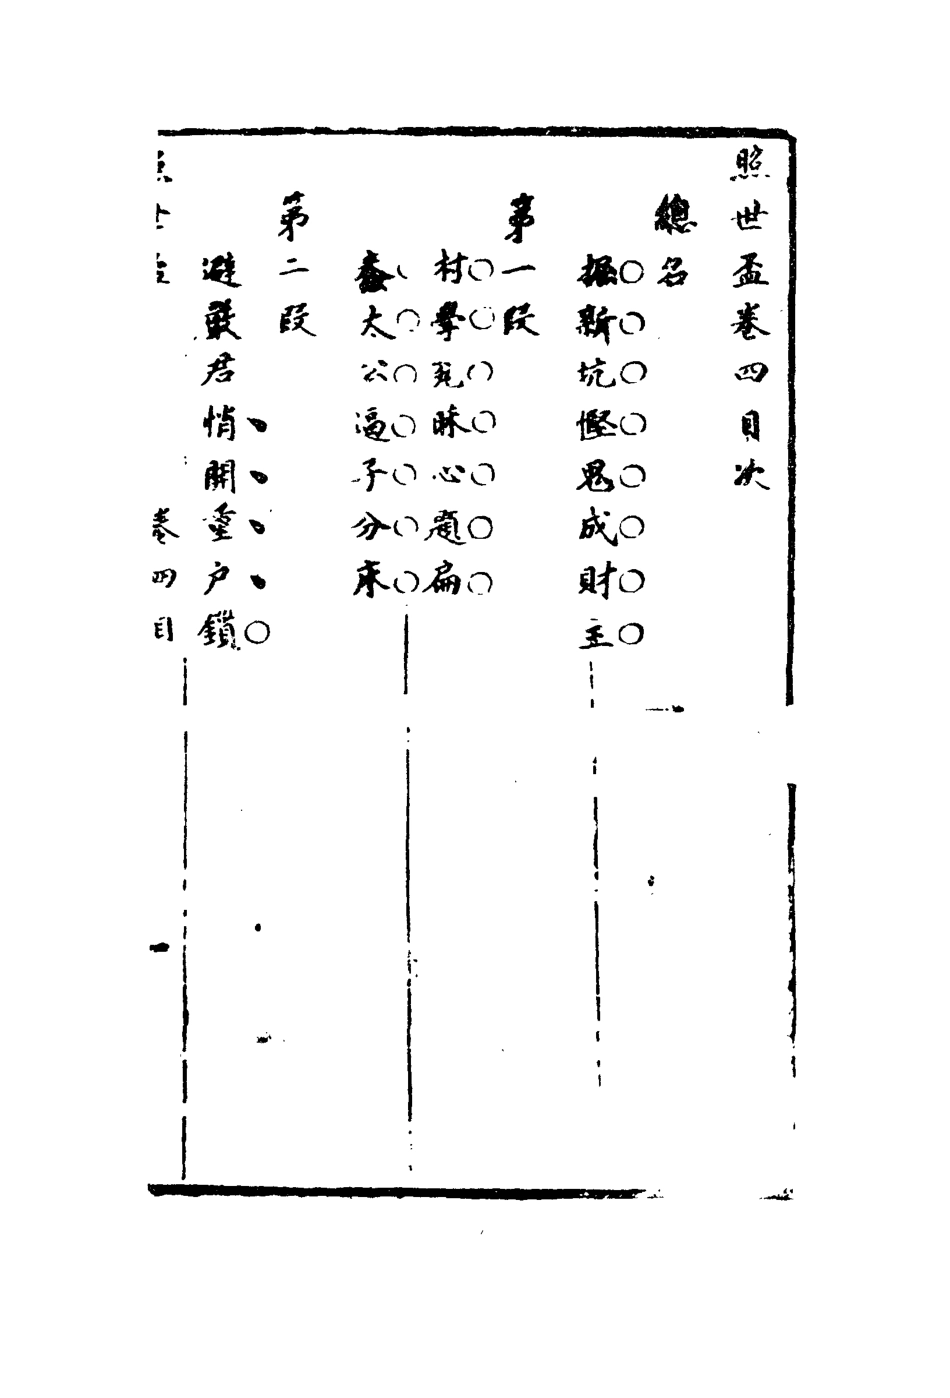 照世盃卷四目次
總名
掘新坑慳鬼成財主
第一段
村學究昧心題扁
蠢太公逼子分床
第二段
避君悄開户鎖
卷四目